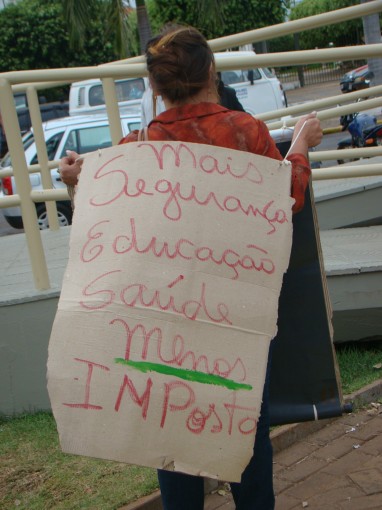 Mais
Segurança
Educação
Saúde
Menos
IMPosto